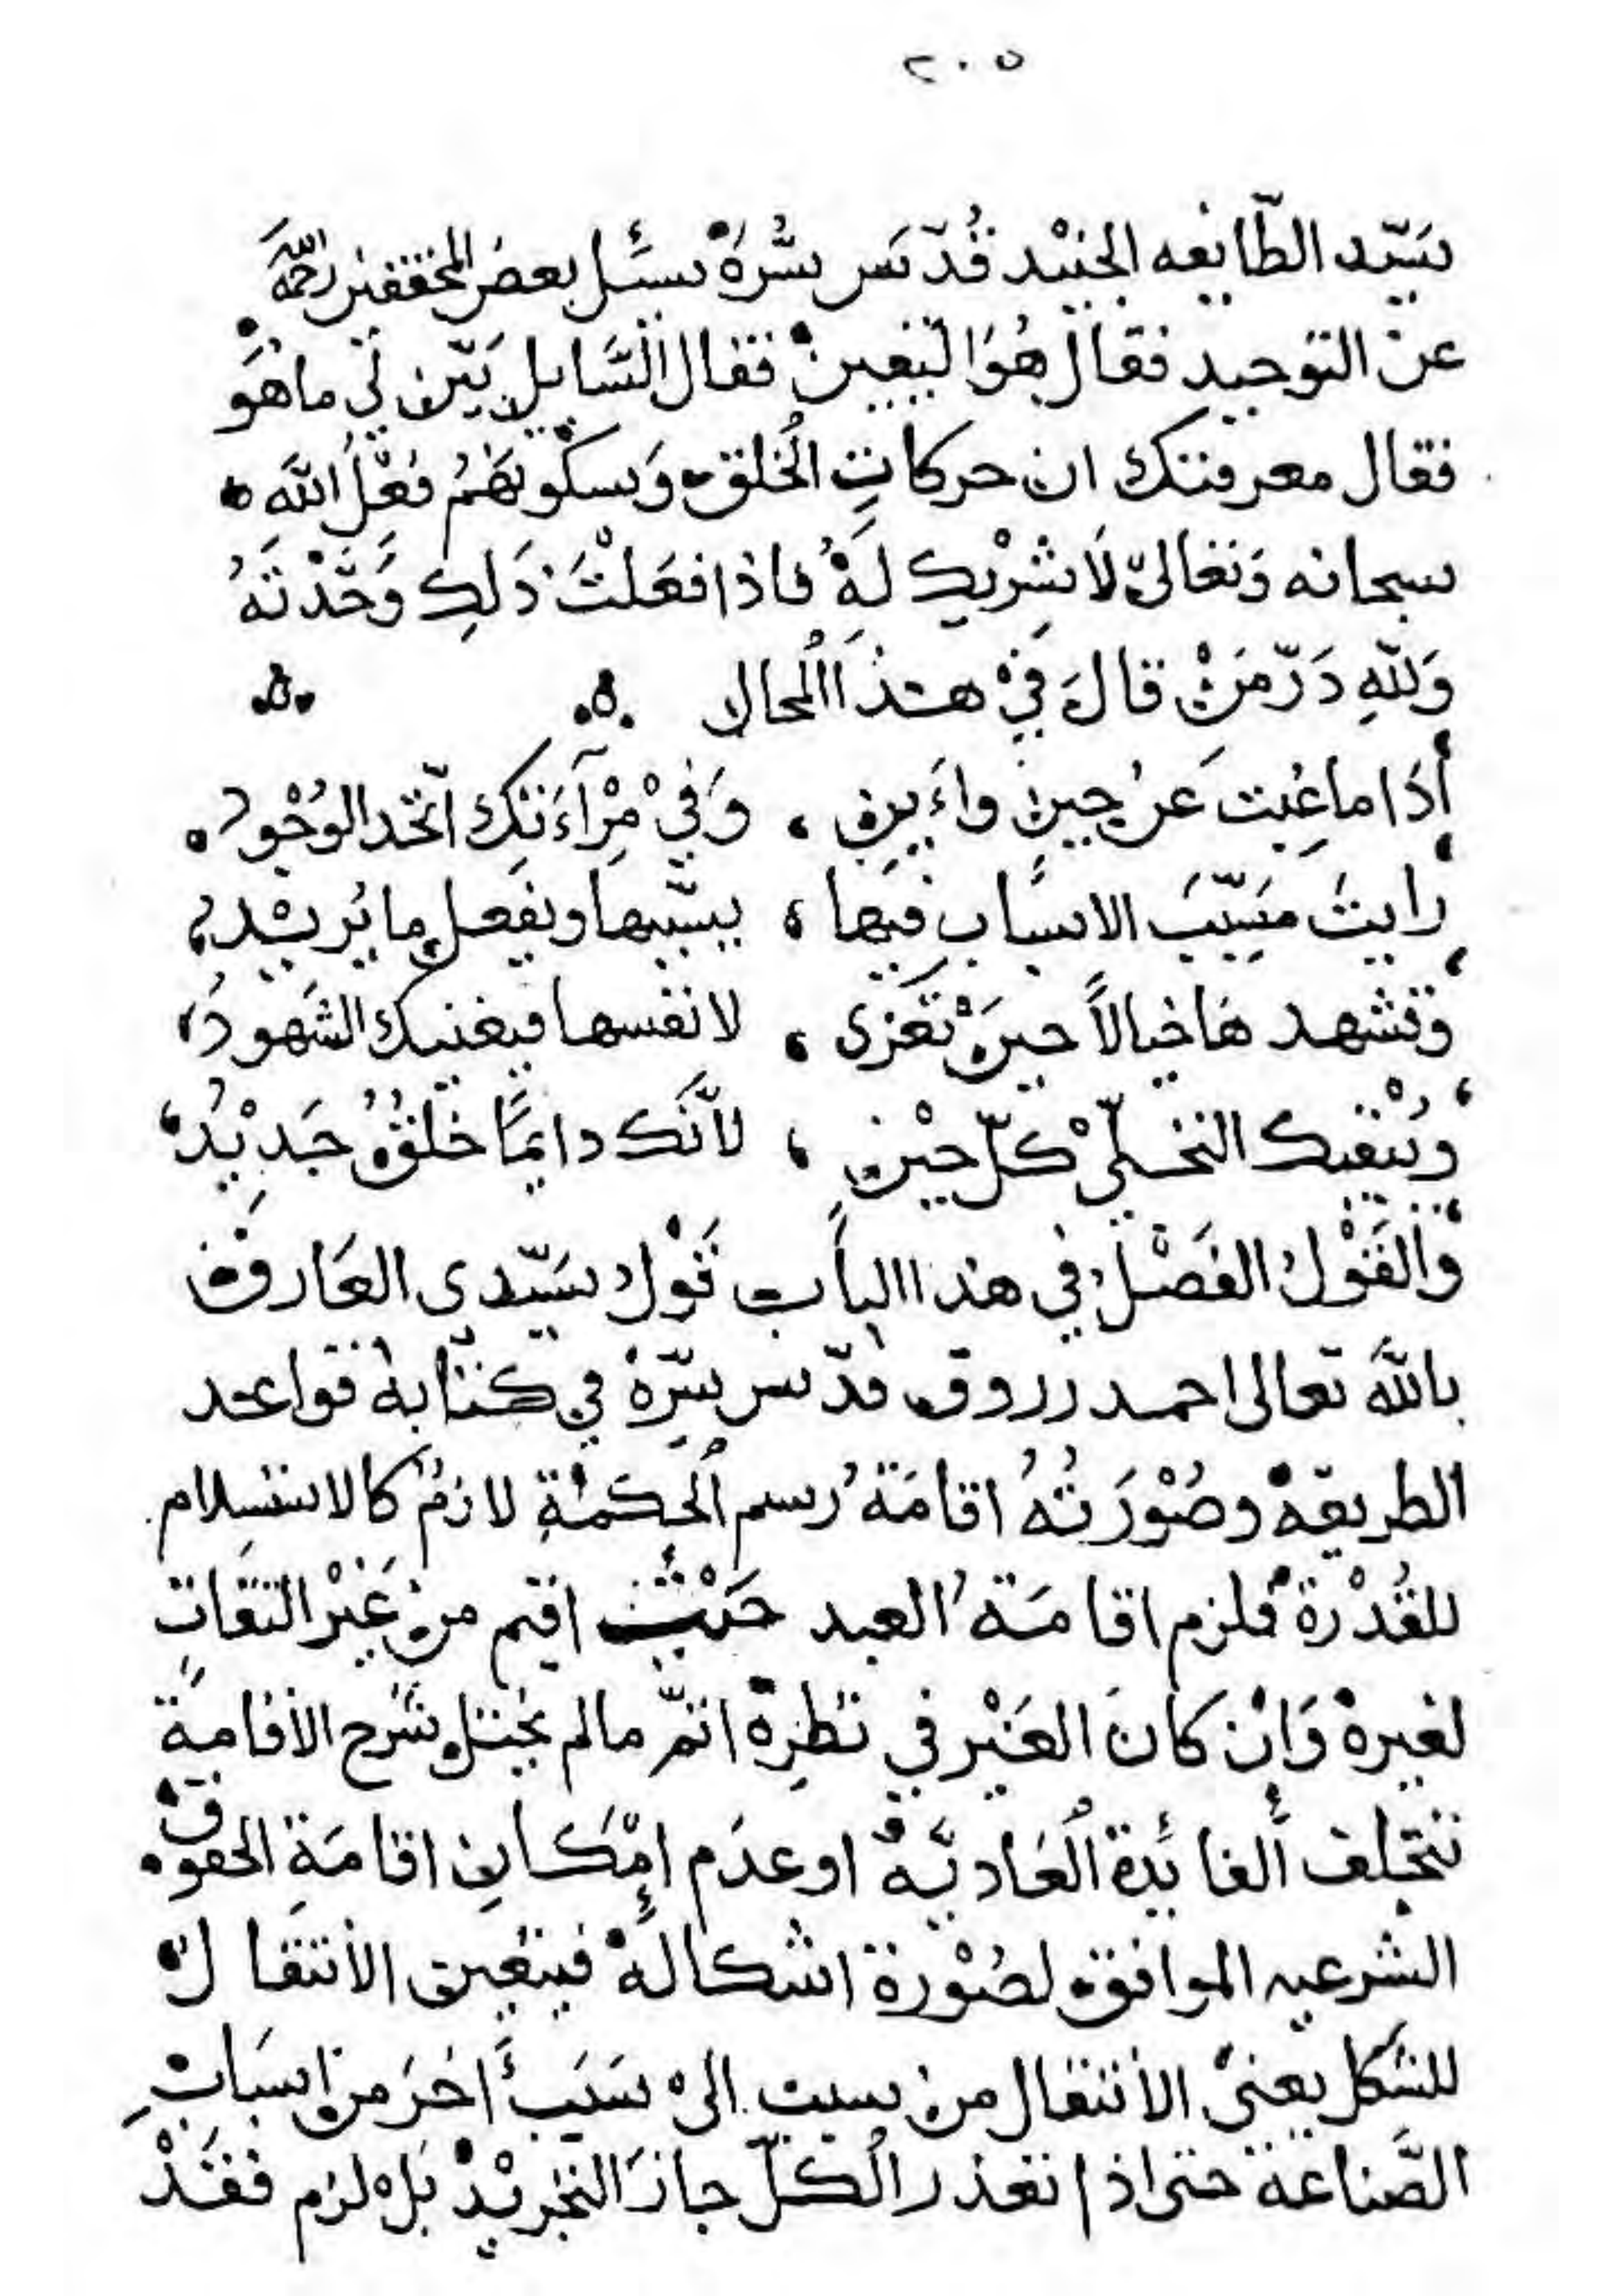 ٢٠٥
سَيّد الطّايفه الجنيْد قُدّسَ سُّرَهْ سئل بعضُ المحققين رحمه الله
عنْ التوحيد فقالَ هُوَ اليَقِينْ فقال السَّايل بَيّن لي ما هُوَ
فقال معرفتك ان حركاتِ الخلق وَسكُونهَمُ فعْلُ اللهَ
سبحانه وَتعَالىّ لَا شرْيك لَهْ فاذا فعَلتَ ذَلك وَحَّدْتَهُ
وَلله دَرّ مَنْ قالَ فيْ هـٰذَا المحال
إذَا ما غبت عَنْ حينٍ وأَينٍ ، وَفيْ مْرآءَتك اتّحد الوُجُود
رايتَ مسَبّبَ الاسباب فيها ، يسببها ويفعل ما يُريد
وتشهدها خيالاً حينَ تعزى ، لانفسها فيغنيك الشهودُ
ويُبْقيك التجلّيْ كلّ حيْنٍ ، لأنّك دايمًا خلقٌ جَديْدُ
وَالقَوْل الفَصْل في هذا الباب قوْل سَيّدي العَارف
باللهَّ تعالى احمد زروق قدّس سِرّهْ في كتابهْ قواعد
الطريقهْ وصُوْرَتُهُ اقامَةُ رسم الحكمَةِ لازمٌ كالاستسلام
للقُدْرة فلزم اقامَةُ العبد حَيْثُ اقيم منْ غَيْر التقاتٍ
لغيرهْ وَانْ كانَ الغَيْر في نظِرهْ اتمّ مالم يختل شَرح الأقامةَ
بتخلف ألفائدة العَاديَّهْ او عدَم امْكان اقامَةِ الحقوق
الشرعيه الموافق لصُوْرة اشكالهْ فيتعين الأنتقالْ
للشكل يعنيْ الأنتقال منْ سبب الىْ سَبَبٍ أخرَ من اسبَاب
الصَّناعَة حتى اذا تعذر الكلّ جازَ التجريْدْ بَلْ لزم فقَدْ